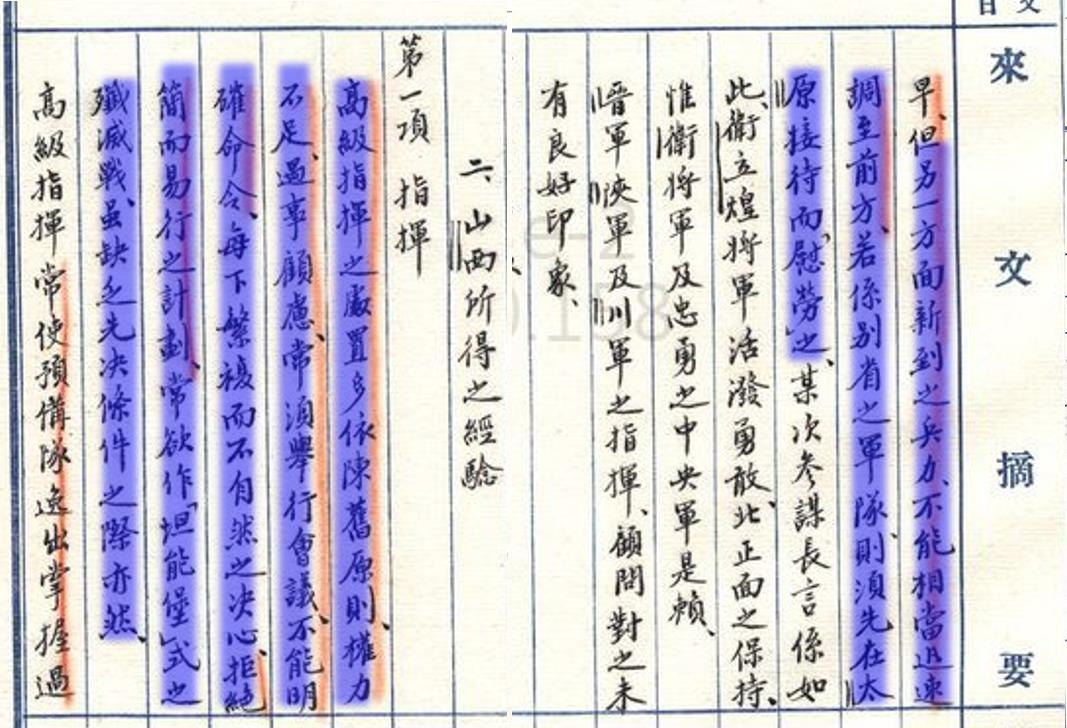 來文摘要
早、但另一方面新到之兵力、不能相當迅速
調至前方、若係別省之軍隊、則須先在太
原接待而「慰勞」之、某次參謀長言係如
此、衛立煌將軍活潑勇敢、北正面之保持、
惟衛將軍及忠勇之中央軍是賴、
晋軍陝軍及川軍之指揮、顧問對之未
有良好印象、
二、山西所得之經驗
第一項 指揮
高級指揮之處置多依陳舊原則、權力
不足、遇事顧慮、常須舉行會議、不能明
確命令、每下繁複而不自然之决心、拒絕
簡而易行之計劃、常欲作「坦能堡」式之
殲滅戰、虽缺乏先决條件之際亦然、
高級指揮常使預備隊逸出掌握過